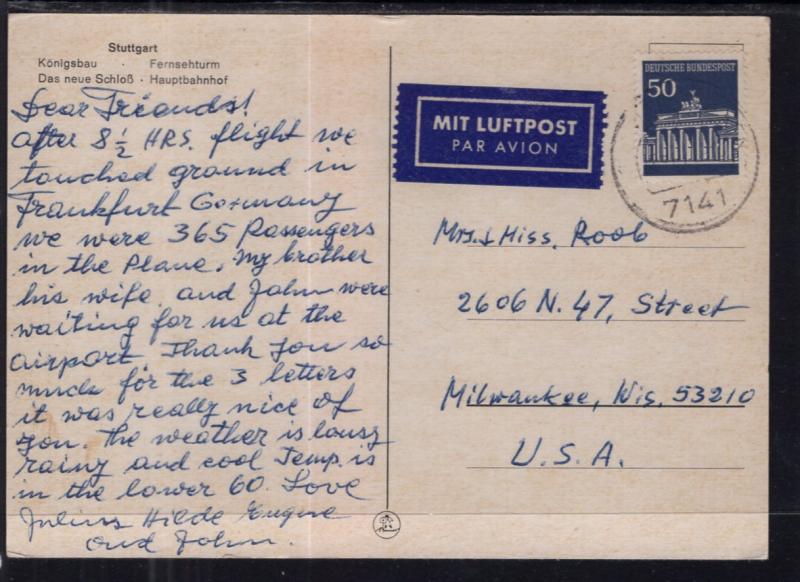 Stuttgart
Königsbau · Fernsehturm
Das neue Schloß · Hauptbahnhof
Dear Frieands!
After 8 1/2 HRS. flight we
touched ground in
Frankfurt Germany
we were 365 Passengers
in the Plane. My brother
his wife, and John were
waiting for us at the
airport Thank you so
much for the 3 letters
it was really nice of
you. The weather is lousy
rainy and cool Temp. is
in the lower 60. Love
Julius Hilde Eugene
and John.
MIT LUFTPOST
PAR AVION
DEUTSCHE BUNDESPOST
50
7141
Mrs. & Miss. Roob
2606 N. 47, Street
Milwaukee, Wis. 53210
U.S.A.